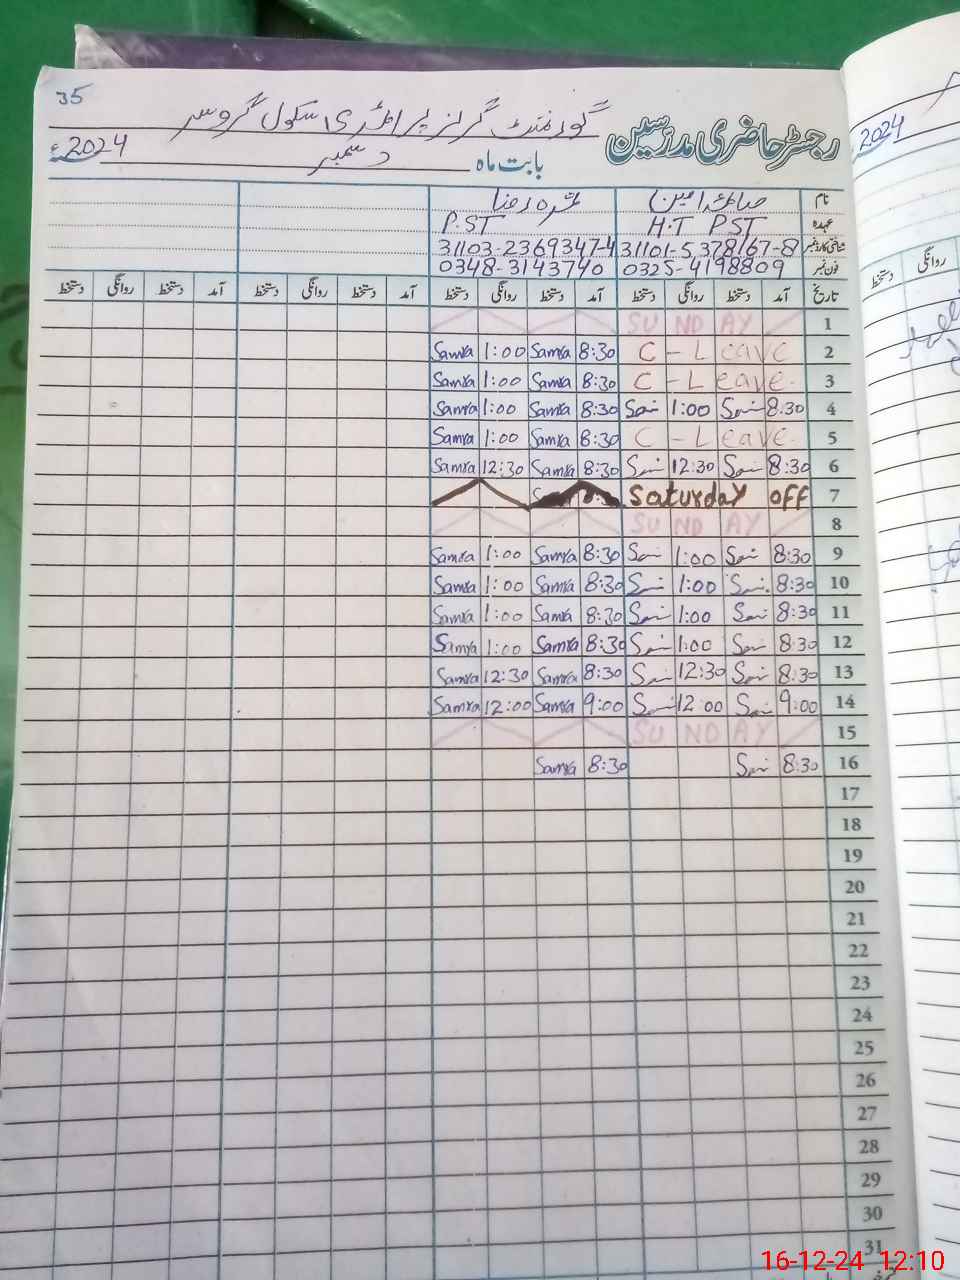 35
گورنمنٹ گرلز پرائمری سکول
رجسٹر حاضری مدرسین
بابت ماہ دسمبر 2024ء
2024
نام صائمہ امین
عہدہ H.T PST P.ST
شناختی کارڈ نمبر 31101-5378167-8 31103-2369347-4
فون نمبر 0325-4198809 0348-3143740
تاریخ آمد دستخط روانگی دستخط آمد دستخط روانگی دستخط آمد دستخط روانگی دستخط آمد دستخط روانگی دستخط
روانگی دستخط
1 SUNDAY
Samra 1:00 Samra 8:30 C-Leave 2
Samra 1:00 Samra 8:30 C-Leave. 3
Samra 1:00 Samra 8:30 1:00 8:30 4
Samra 1:00 Samra 8:30 C-Leave. 5
Samra 12:30 Samra 8:30 12:30 8:30 6
Saturday off 7
SUNDAY 8
Samra 1:00 Samra 8:30 1:00 8:30 9
Samra 1:00 Samra 8:30 1:00 8:30 10
Samra 1:00 Samra 8:30 1:00 8:30 11
Samra 1:00 Samra 8:30 1:00 8:30 12
Samra 12:30 Samra 8:30 12:30 8:30 13
Samra 12:00 Samra 9:00 12:00 9:00 14
SUNDAY 15
Samra 8:30 8:30 16
17
18
19
20
21
22
23
24
25
26
27
28
29
30
31
16-12-24 12:10